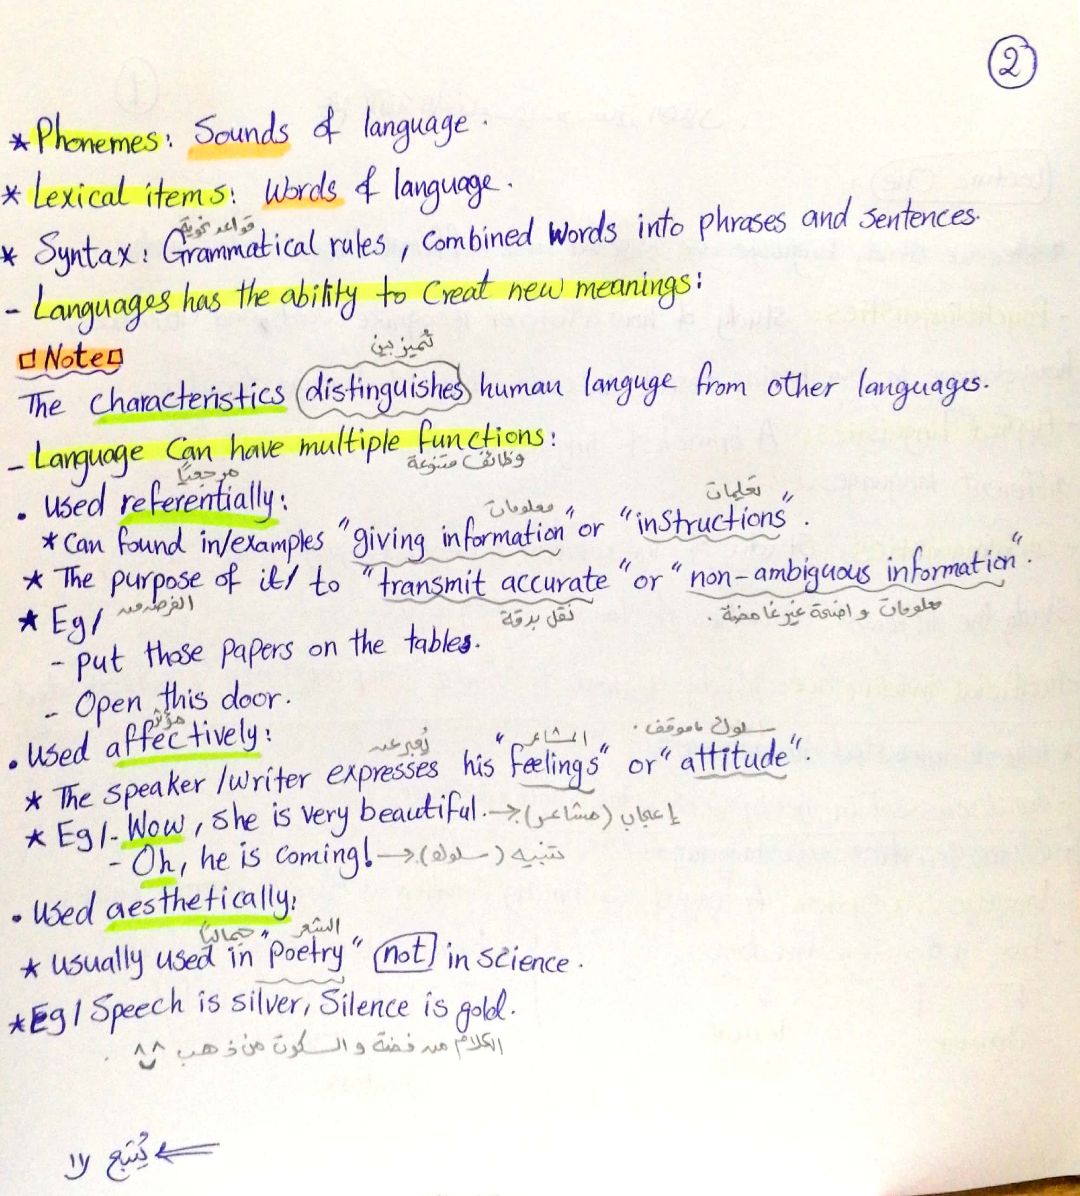 2
* Phonemes: Sounds of language.
* Lexical items: Words of language.
قواعد نحوية
* Syntax: Grammatical rules, combined words into phrases and sentences.
- Languages has the ability to Creat new meanings:
Note
تُميز بين
The characteristics distinguishes human languge from other languages.
- Language Can have multiple functions:
وظائف متنوعة
مرجعيًا
• Used referentially:
معلومات تعليمات
* Can found in/examples "giving information" or "instructions".
* The purpose of it/ to "transmit accurate" or "non-ambiguous information".
الغرض منه نقل بدقة معلومات واضحة غير غامضة.
* Eg/
- put those papers on the tables.
- Open this door.
مؤثر
• Used affectively:
يُعبر عنه المشاعر سلوك موقف.
* The speaker/writer expresses his "feelings" or "attitude".
* Eg/- Wow, she is very beautiful. → إعجاب (مشاعر)
- Oh, he is coming! → تنبيه (سلوك).
• Used aesthetically:
جماليًا الشعر
* usually used in "Poetry" not in science.
* Eg/ Speech is silver, Silence is gold.
الكلام من فضة والسكوت من ذهب ^^
يُتبع